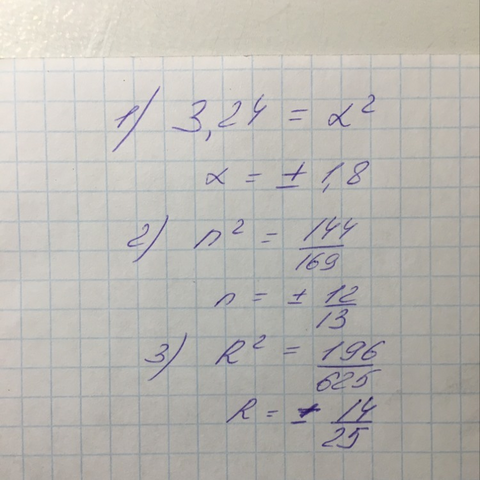 1) 3,24 = α²
α = ± 1,8
2) n² = 144/169
n = ± 12/13
3) R² = 196/625
R = ± 14/25